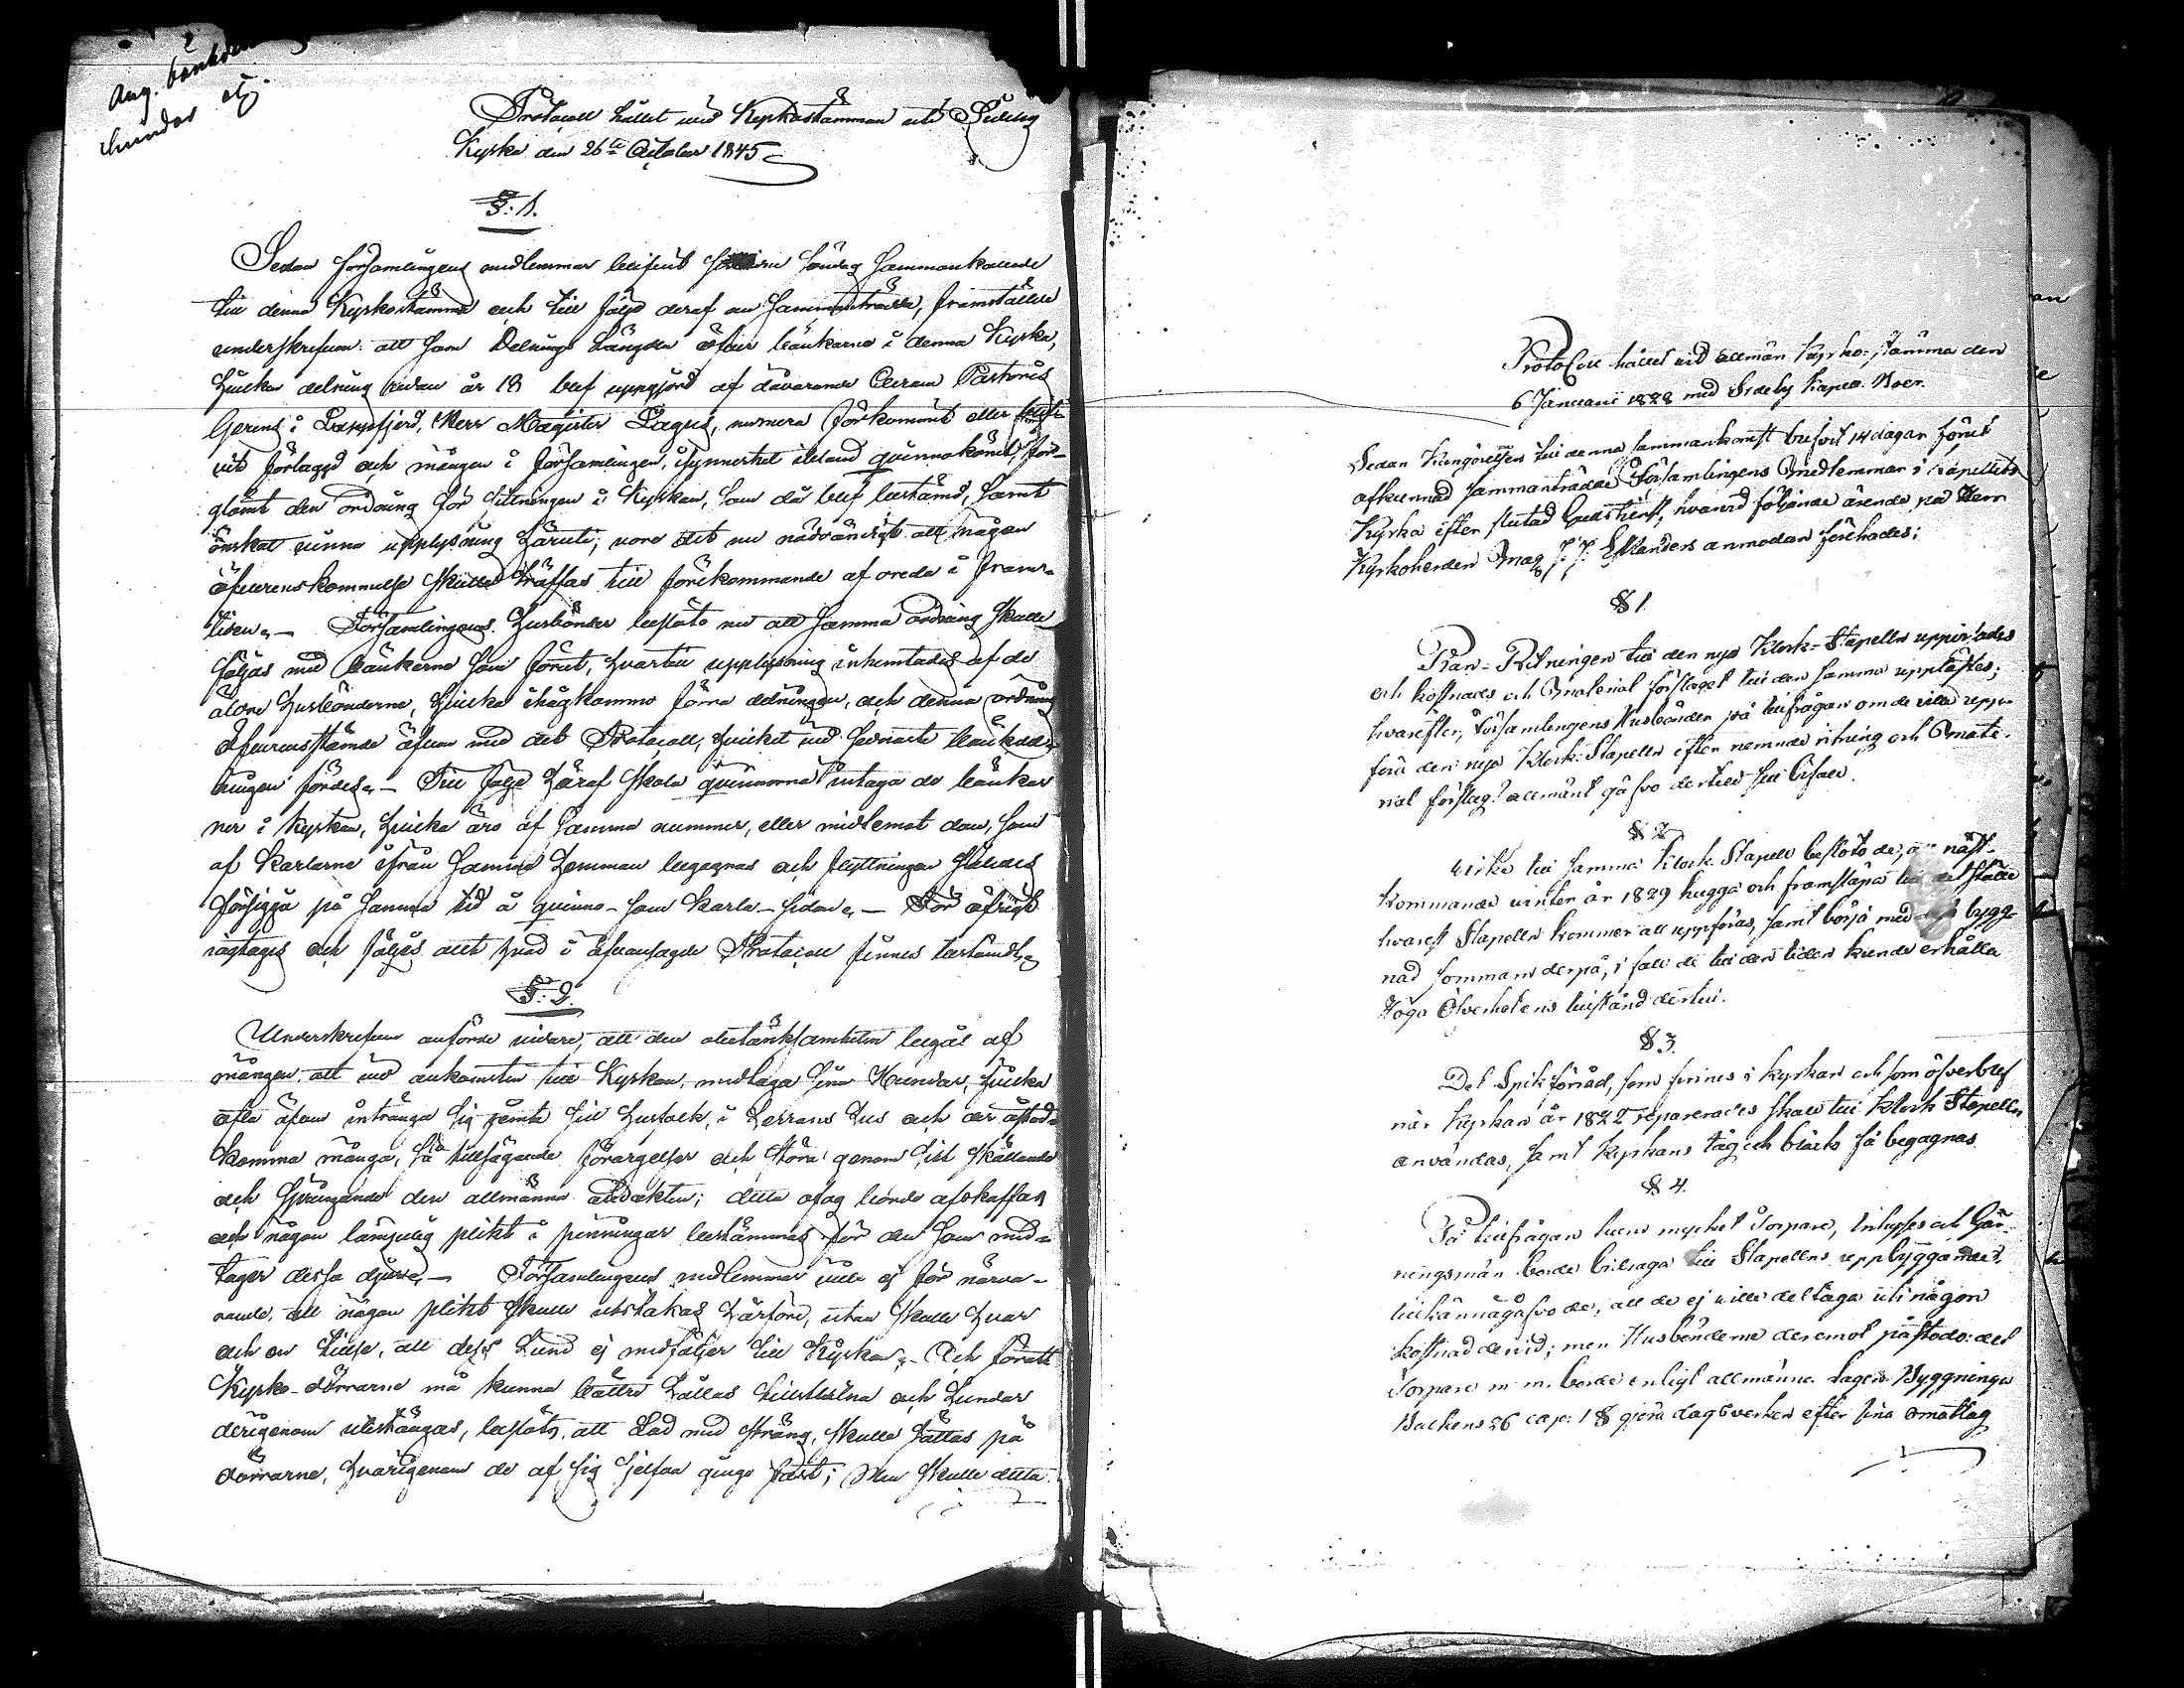 Ang. bänkdeln
hundar etz.
Protocoll hållet vid Kyrkostämman uti Sideby
Kyrka den 26te October 1845
§: 1.
Sedan församlingens medlemmar blifvit söndag sammankallade
till denna Kyrkostämma och till följe deraf nu sammanträdde, framställde
underskrifven: att som Delnings Längden öfver bänkarne i denna Kyrka,
hvilken delning redan år 18 blef uppgjord af dåvarande Curam Pastoris
Gerens i Lappfjerd, Herr Magister Lagus, numera förkommit eller blif-
vit förlaggd och mången i församlingen, i synnerhet ibland quinnokönet för-
glömt den ordning för sittningen i Kyrkan, som då blef bestämd, samt
önskat vinna upplysning häruti; vore det nu nödvändigt att någon
öfverenskommelse skulle träffas till förekommande af oreda i fram-
tiden. — Församlingens Husbönder beslöto nu att samma ordning skulle
följas med bänkarne som förut, hvartill upplysning inhemtades af de
äldre husbönderne, hvilka ihågkommo förra delningen, och denna ordning
öfverensstämde äfven med det Protocoll, hvilket vid bänkdel-
ningen fördes. — Till följe häraf skola quinnorna intaga de bänkar
ner i Kyrkan, hvilka äro af samma nummer, eller midtemot dem, som
af Karlarne ifrån samma hemman begagnas och flyttningen således
försiggå på samma tid å quinno- som Karls-sidan. — För öfrigt
iagtages och följes allt hvad i ofvansagde Protocoll finnes bestämdt.
§: 2.
Underskrifven anförde vidare, att den obetänksamheten begås af
mången, att vid ankomsten till Kyrkan, medtaga sina Hundar, hvilka
ofta äfven intränga sig jemte sitt husfolk, i Herrans hus och der åstad-
komma många, så tillsägande förargelser och störa genom sitt skällande
och springande den allmänna andakten; detta ofog borde afskaffas
och någon lämpelig plikt i penningar bestämmas för den som med-
tager dessa djur. — Församlingens medlemmar ville ej för närva-
rande, att någon plikt skulle utstakas härföre, utan skulle hvar
och en tillse, att dess hund ej medföljer till Kyrkan. — Och föratt
Kyrko-dörrarne må kunna bättre hållas tillslutna och hundar
derigenom utestängas, beslöts, att Lod med sträng, skulle sättas på
dörrarne, hvarigenom de af sig sjelfva ginge fast; Men skulle detta
Protocoll hållet vid allmän Kyrko-stämma den
6 Januarii 1828 med Sideby Capell Boer.
Sedan Kungörelsen till denna sammankomst blifvit 14 dagar förut
afkunnad sammanträdde Församlingens Medlemmar i Capellets
Kyrka efter slutad Gudstienst, hvarvid följande ärende på Herr
Kyrkoherden Mag. J. J. Estlanders anmodan förehades;
§ 1.
Plan-Ritningen till den nya Klock-Stapeln uppvistes
och kostnads och Material förslaget till den samma upplästes;
hvarefter, Församlingens Husbönder på tillfrågan om de ville upp-
föra den nya Klock-Stapeln efter nemnde ritning och Mate-
rial förslag? allmänt gåfvo dertill sitt bifall.
§ 2.
Virke till samma Klock-Stapel beslöto de, att näst-
kommande vinter år 1829 hugga och framsläpa till det ställe
hvarest Stapeln kommer att uppföras, samt börja med bygg-
nad sommarn derpå, i fall de till den tiden kunde erhålla
Höga Öfverhetens tillstånd dertill.
§ 3.
Det Spikförråd, som finnes i kyrkan och som öfverblef
när Kyrkan år 1822 reparerades skall till Klock Stapeln
användas, samt Kyrkans tåg och block få begagnas
§ 4.
På tillfrågan huru mycket Torpare, Inhyses och Gär-
ningsmän borde bidraga till Stapellens uppbyggande?
tillkännagåfvo de, att de ej ville deltaga uti någon
kostnad dervid; men Husbönderne deremot påstodo: det
Torpare m. m. borde enligt allmänna Lagens Byggninga
Balkens 26 cap: 1 § gjöra dagsverken efter sina matlag